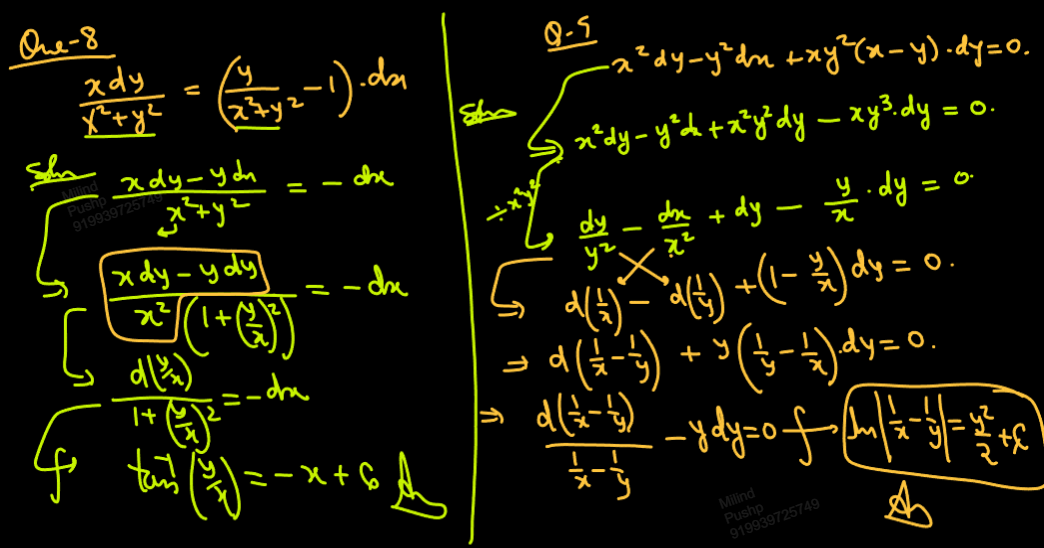 Que-8
x dy / (x² + y²) = (y / (x² + y²) − 1) · dx
Soln
(x dy − y dx) / (x² + y²) = − dx
⇒ (x dy − y dy) / (x² (1 + (y/x)²)) = − dx
⇒ d(y/x) / (1 + (y/x)²) = − dx
∫ tan⁻¹(y/x) = − x + C Ans
Milind
Pushp
919939725749
Q-9
x² dy − y² dx + xy² (x − y) · dy = 0.
Soln
⇒ x² dy − y² dx + x²y² dy − xy³ · dy = 0.
÷ x²y²
dy/y² − dx/x² + dy − y/x · dy = 0.
⇒ d(1/x) − d(1/y) + (1 − y/x) dy = 0.
⇒ d(1/x − 1/y) + y (1/y − 1/x) · dy = 0.
⇒ d(1/x − 1/y) / (1/x − 1/y) − y dy = 0 ∫→ ln |1/x − 1/y| = y²/2 + C
Ans
Milind
Pushp
919939725749